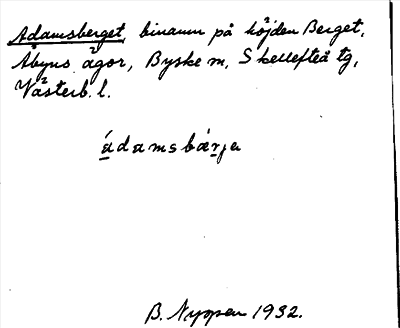 Adamsberget, binamn på höjden Berget,
Åbyns ägor, Byske sn, Skellefteå tg,
Västerb. l.
ádamsbærja
B. Nyman 1932.